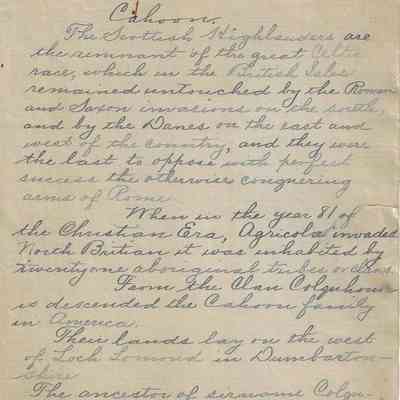 Cahoon.
The Scottish Highlanders are
the remnant of the great Celtic
race, which in the British Isles
remained untouched by the Roman
and Saxon invasions on the south,
and by the Danes on the east and
west of the country, and they were
the last to oppose with perfect
success the otherwise conquering
arms of Rome
When in the year 81 of
the Christian Era, Agricola invaded
North Britian it was inhabited by
twenty one aboriginal tribes or clans.
From the Clan Colquhoun
is descended the Cahoon family
in America.
Their lands lay on the west
of Loch Lomond in Dumbarton-
shire
The ancestor of sirname Colqu-